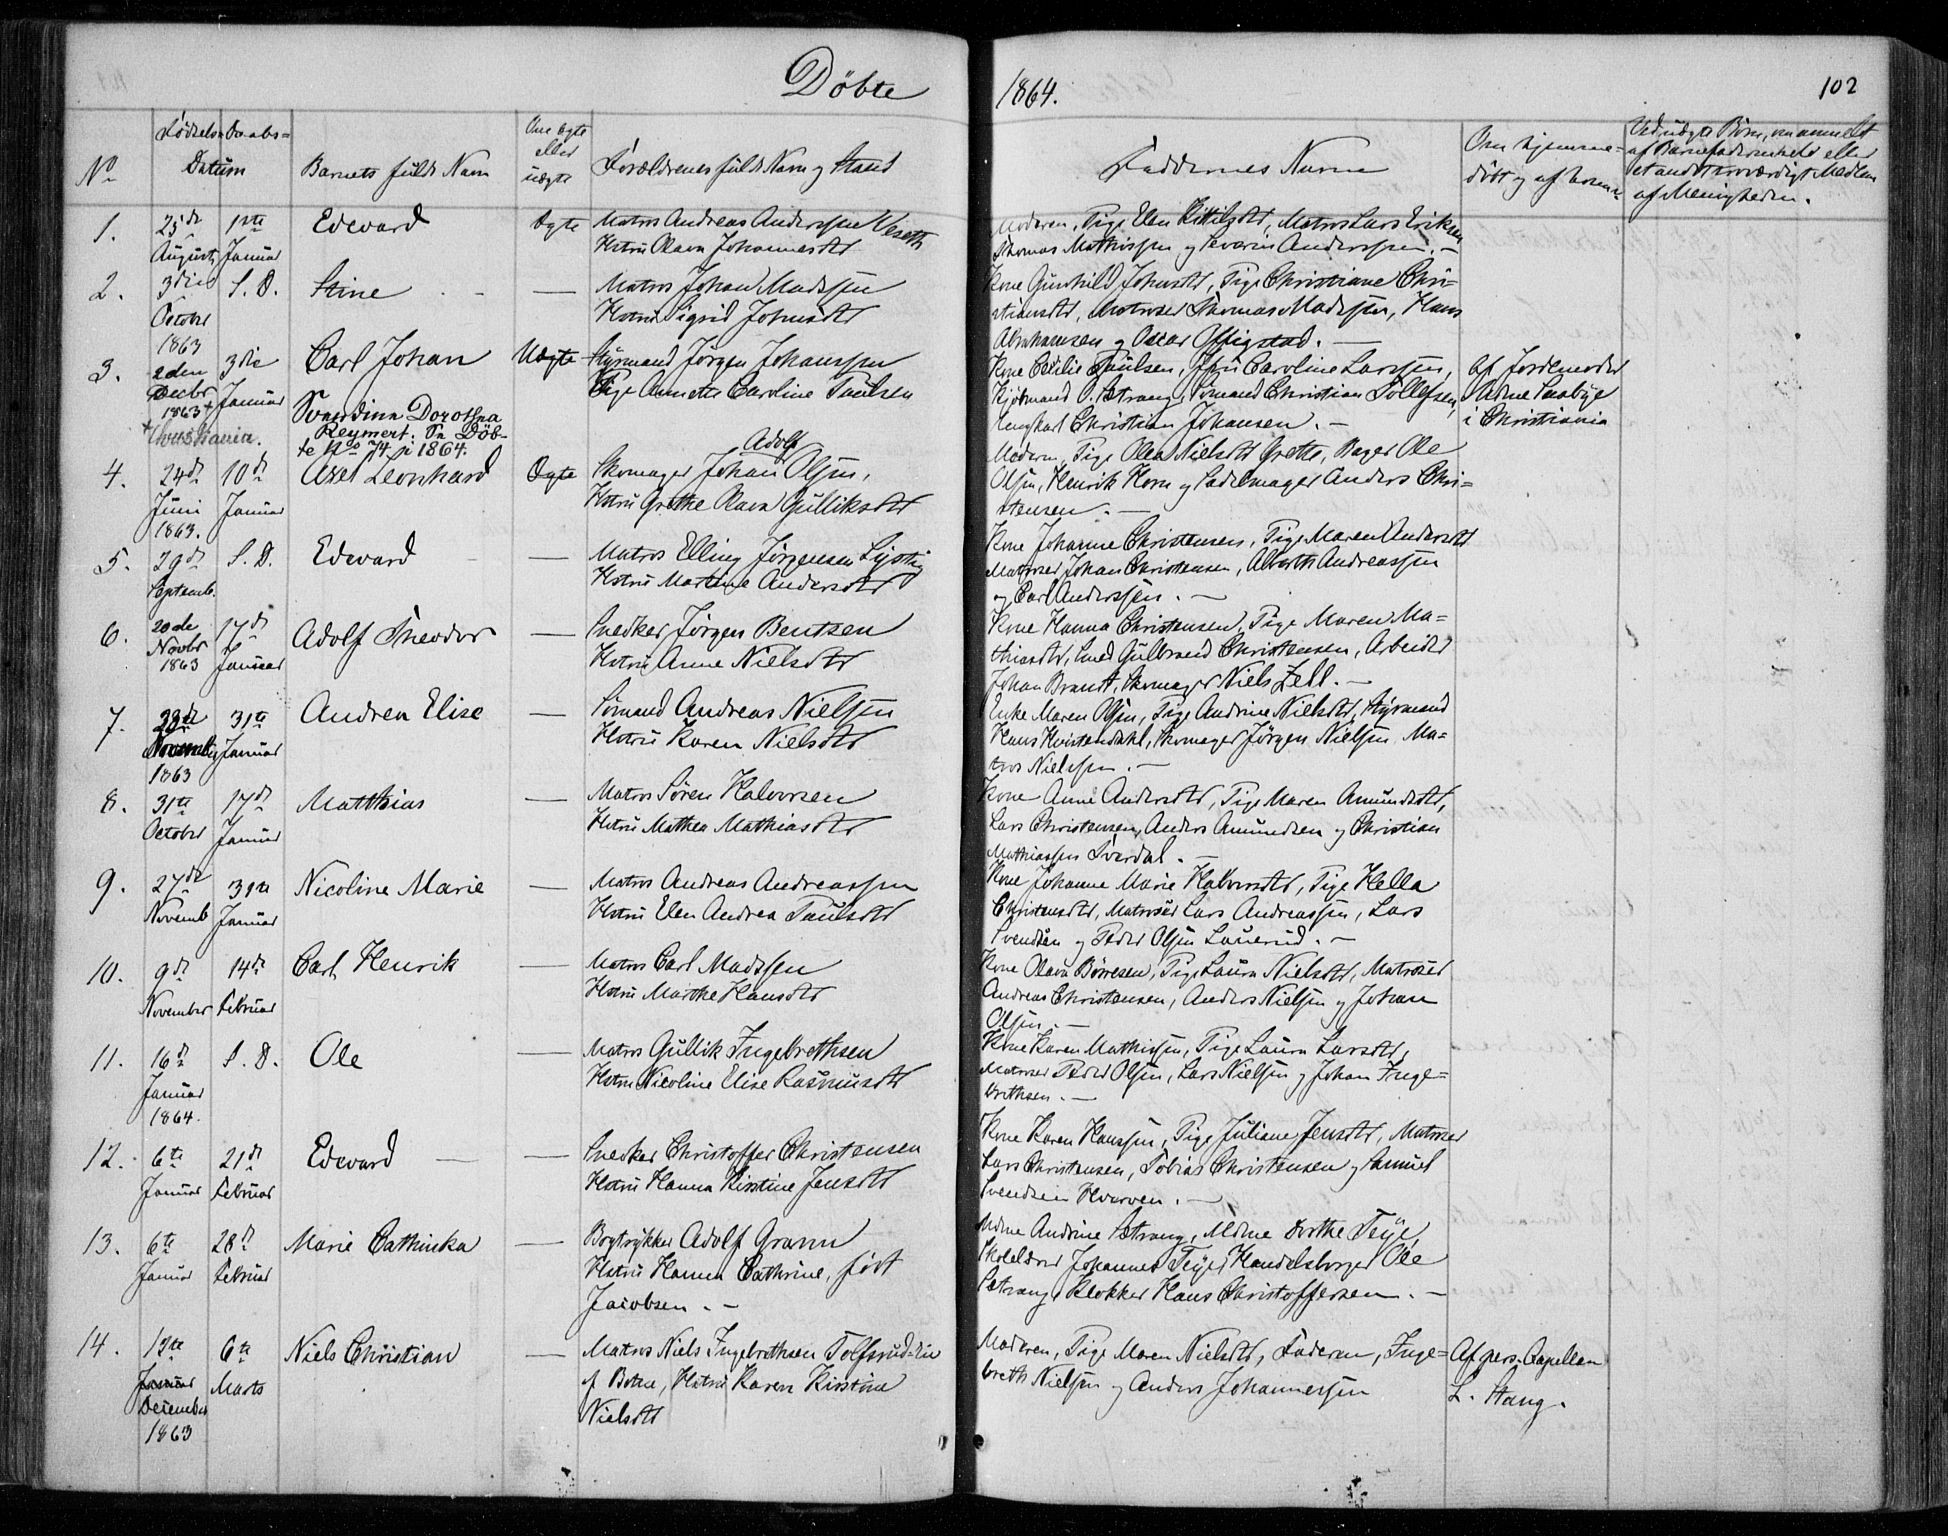 Döbte
1864.
102
No
Fødsels Daabs=
Datum
Barnets fulde Navn
Om ægte
eller
uægte
Forældrenes fulde Navn og Stand
Faddernes Navne
Om hjemme=
döbt og af hvem
Ved uægte Börn, om anmeldt
af Barnefaderen selv eller
et andet troværdigt Medlem
af Menigheden.
1.
25de
August
1ste
Januar
Edevard
Ægte
Matros Andreas Anderssen Veseth
Hstru Olava Johannesdtr
Moderen, Pige Elen Kittilsdtr, Matros Lars Eriksen
Thomas Mathissen og Severin Anderssen. —
2.
3die
October
1863
S. D.
Stine
—
Matros Johan Madssen
Hstru Sigrid Johnsdtr
Kone Gunhild Johnsdtr, Pige Christiane Chri=
stiansdtr, Matroser Thomas Madssen, Hans
Abrahamsen og Oscar Offigstad. —
3.
2den
Decbr
1863 +
+ Christiania.
3die
Januar
Carl Johan
Svardina Dorothea
Reymert: Se Döb-
te No 74 i 1864.
Uægte
Styrmand Jørgen Johanssen
Pige Annette Caroline Paulsen
Kone Cecilie Paulsen, Jfru Caroline Larssen,
Kjøbmand P. Strang, Sømand Christian Tollefsen,
Ungkarl Christian Johansen. —
af Jordemoder
i Christiania
4.
24de
Juni
1863.
10de
Januar
Axel Leonhard
Ægte
Adolf
Skomager Johan Olsen,
Hstru Grethe Olava Gulliksdtr
Moderen, Pige Olea Nielsdtr Grette, Bager Ole
Olsen, Henrik Horn og Sadelmager Anders Chri=
stensen. —
5.
29de
Septemb.
S. D.
Edevard
—
Matros Elling Jørgensen Lystig
Hstru Martine Andersdtr
Kone Johanne Christensen, Pige Maren Andersdtr
Matroser Johan Christensen, Alberth Andreassen
og Carl Anderssen. —
6.
20de
Novbr
1863
17de
Januar
Adolf Theodor
—
Snedker Jörgen Bentsen
Hstru Anne Nielsdtr
Kone Hanna Christensen, Pige Maren Ma=
thiasdtr, Smed Gulbrand Christensen, Arbeider
Johan Brandt, Skomager Niels Zell. —
7.
23de
November
1863
31te
Januar
Andrea Elise
—
Sømand Andreas Nielsen
Hstru Karen Nielsdtr
Enke Maren Olsen, Pige Andrine Nielsdtr, Styrmand
Hans Kvistendahl, Skomager Jörgen Nielsen, Ma=
tros Nielssen. —
8.
31te
October
17de
Januar
Matthias
—
Matros Søren Halvorsen
Hstru Mathea Mathiasdtr
Kone Anne Andersdtr, Pige Maren Amundsdtr,
Lars Christensen, Anders Amundsen og Christian
Mathiassen Sverdal. —
9.
27de
Novemb
31te
Januar
Nicoline Marie
—
Matros Andreas Andreassen
Hstru Elen Andrea Paulsdtr
Kone Johanne Marie Halvorsdtr, Pige Hella
Christensdtr, Matroser Lars Andreassen, Lars
Svendsen og Peder Olsen Lauerud. —
10.
9de
November
14de
Februar
Carl Henrik
—
Matros Carl Madssen
Hstru Marthe Hansdtr
Kone Olava Börresen, Pige Laura Nielsdtr, Matroser
Andreas Christensen, Anders Nielsen og Johan
Olsen. —
11.
16de
Januar
1864.
S. D.
Ole
—
Matros Gullik Ingebrethsen
Hstru Nicoline Elise Rasmusdtr
Kone Karen Mathissen, Pige Laura Larsdtr,
Matroser Peder Olsen, Lars Nielsen og Johan Inge=
brethsen. —
12.
6te
Januar
21de
Februar
Edevard
—
Snedker Christoffer Christensen
Hstru Hanna Kirstine Jensdtr
Kone Karen Hanssen, Pige Juliane Jensdtr, Matroser
Lars Christensen, Tobias Christensen og Samuel
Svendsen Hvarven. —
13.
6te
Januar
28de
Februar
Marie Cathinka
—
Bogtrykker Adolf Gramm
Hstru Hanna Cathrine, født
Jacobsen. —
Mdme Andrine Strang, Mdme Dorthe Teije,
Skolelærer Johannes Teije, Handelsborger Ole
Strang, Klokker Hans Christoffersen. —
14.
12te
Januar
December
1863
6te
Marts
Niels Christian
—
Matros Niels Ingebrethsen Tolfsrud-Eie
af Botne, Hstru Karen Kirstine
Nielsdtr
Moderen, Pige Maren Nielsdtr, Faderen, Inge=
breth Nielsen og Anders Johannessen
Af pers. Capellan
L. Stang.